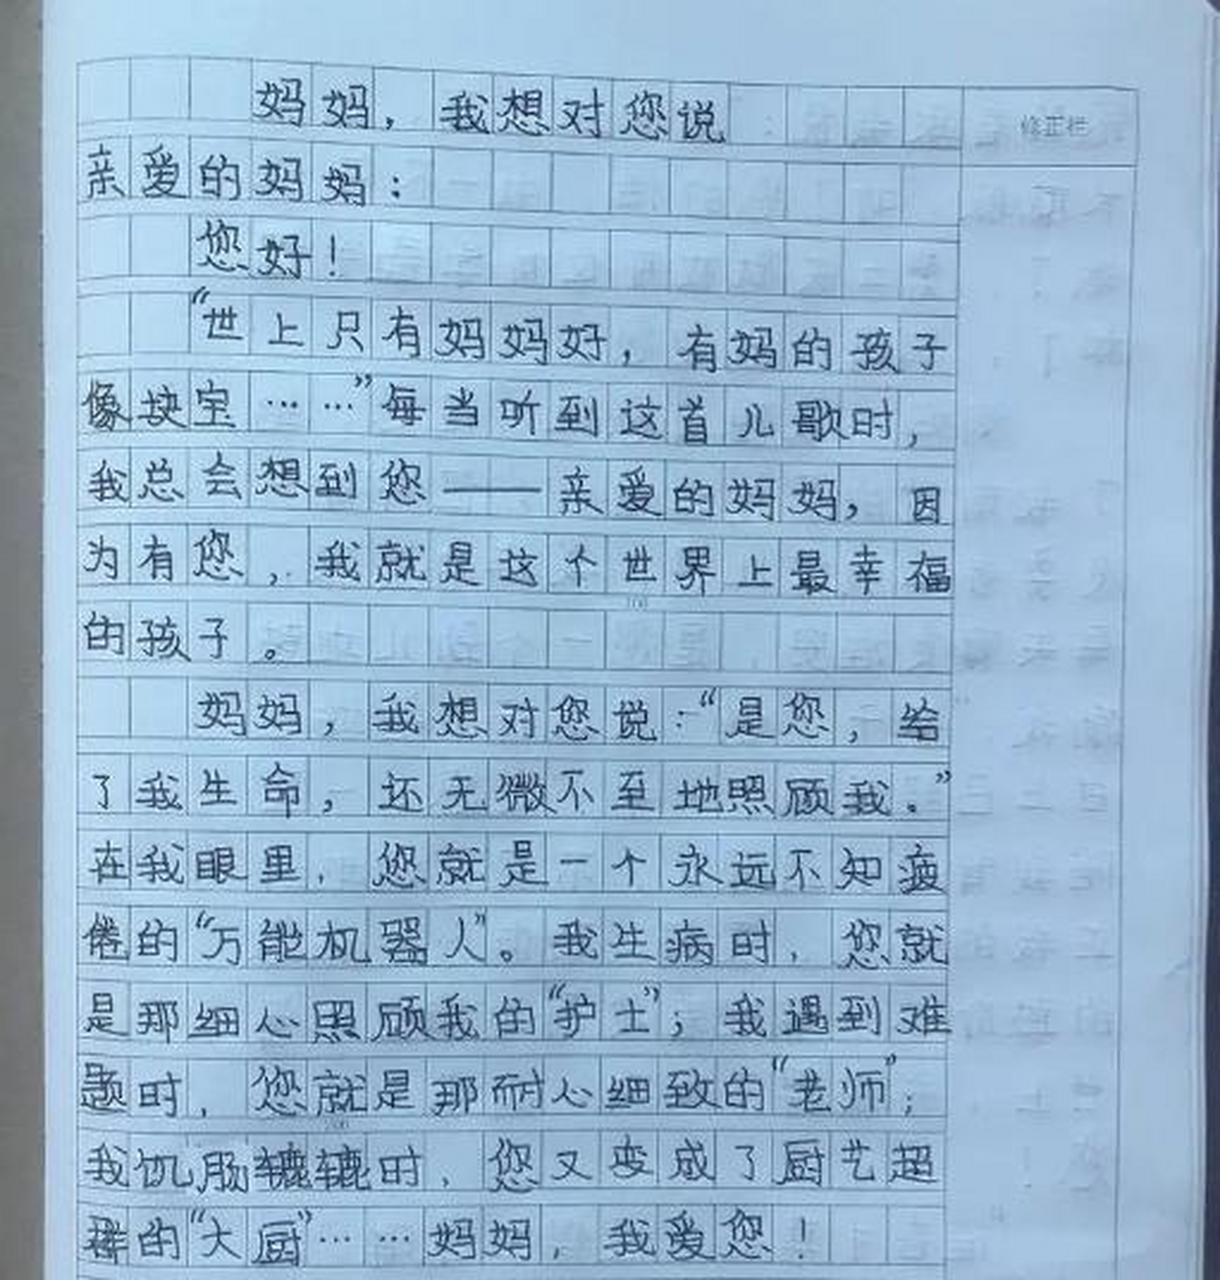 妈妈，我想对您说
修正栏
亲爱的妈妈：
您好！
“世上只有妈妈好，有妈的孩子
像块宝……”每当听到这首儿歌时，
我总会想到您——亲爱的妈妈，因
为有您，我就是这个世界上最幸福
100
的孩子。
妈妈，我想对您说：“是您，给
了我生命，还无微不至地照顾我。”
在我眼里，您就是一个永远不知疲
倦的“万能机器人”。我生病时，您就
是那细心照顾我的“护士”；我遇到难
题时，您就是那耐心细致的“老师”；
200
我饥肠辘辘时，您又变成了厨艺超
群的“大厨”……妈妈，我爱您！